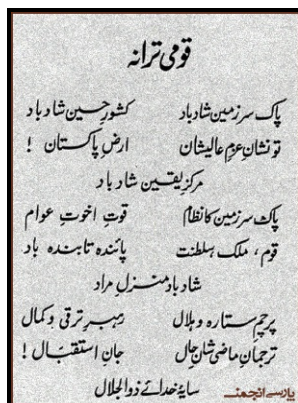 قومی ترانہ
پاک سرزمین شاد باد کشورِ حسین شاد باد
تو نشانِ عزمِ عالیشان ارضِ پاکستان !
مرکزِ یقین شاد باد
پاک سرزمین کا نظام قوتِ اخوتِ عوام
قوم ، ملک ، سلطنت پائندہ تابندہ باد
شاد باد منزلِ مراد
پرچمِ ستارہ و ہلال رہبرِ ترقی و کمال
ترجمانِ ماضی شانِ حال جانِ استقبال !
سایۂ خدائے ذوالجلال
پارسی انجمن